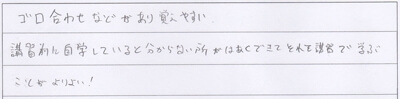 ゴロ合わせなどがあり覚えやすい
講習前に自学していると分からない所がはあくできてそれを講習で学ぶ
ことがよりよい!